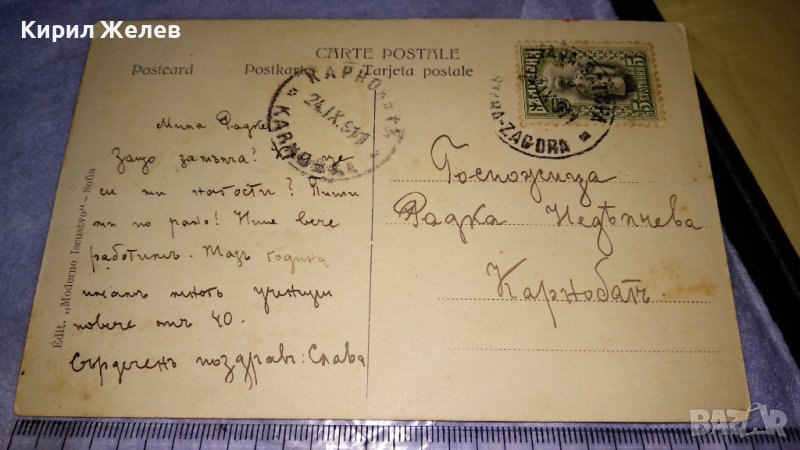 Кирил Желев
CARTE POSTALE
Postcard Postkarte Tarjeta postale
КАРНОБАТЪ
24.IX.911
KARNOBAT
STARA-ZAGORA
Édit. „Moderno Iscustvo“ – Sofia
Мила Радке
Защо замълча?
си ми нагости? Пиши
ми по рано! Ние вече
работимъ. Тазъ година
имамъ много ученици
повече отъ 40.
Сърдеченъ поздравъ: Слава
Госпожица
Радка Недѣлчева
Карнобатъ
BAZAR